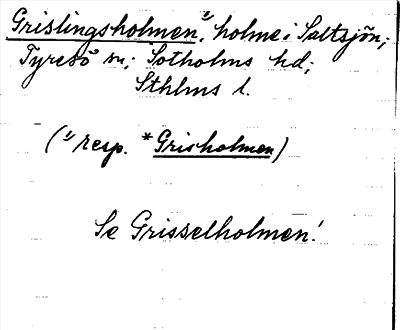 Grislingsholmen¹⁾, holme i Saltsjön;
Tyresö sn; Sotholms hd;
Sthlms l.
(¹⁾ resp. *Grisholmen)
Se Grisselholmen!